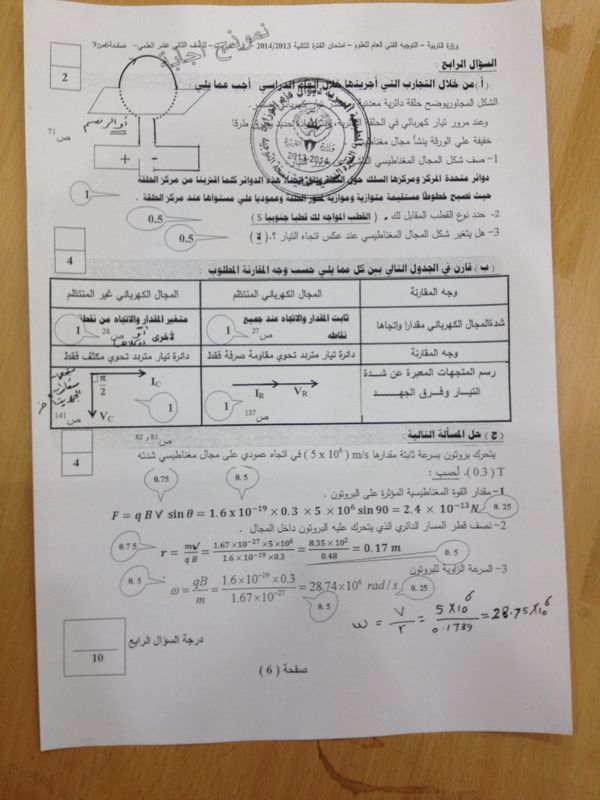 وزارة التربية – التوجيه الفني العام للعلوم – امتحان الفترة الثانية 2014/2013 – للصف الثاني عشر العلمي-
نموذج اجابة
السؤال الرابع:
2
( أ ) من خلال التجارب التي أجريتها خلال العام الدراسي أجب عما يلي
الشكل المجاور يوضح حلقة دائرية معدنية تيار كهربائي
وعند مرور تيار كهربائي في الحلقة حديد طرقا
خفيفة علي الورقة ينشأ مجال مغناطيسي
أو الرسم
ص71
+ -
2013-2014
1– صف شكل المجال المغناطيسي
دوائر متحدة المركز ومركزها السلك حول هذه الدوائر كلما اقتربنا من مركز الحلقة
حيث تصبح خطوطا مستقيمة متوازية وموازية لمحور الحلقة وعموديا علي مستواها عند مركز الحلقة .
1
2- حدد نوع القطب المقابل لك . ( القطب المواجه لك قطبا جنوبيا S )
0.5
3– هل يتغير شكل المجال المغناطيسي عند عكس اتجاه التيار ؟.( لا )
0.5
4
( ب ) قارن في الجدول التالي بين كل مما يلي حسب وجه المقارنة المطلوب :
وجه المقارنة المجال الكهربائي المنتظم المجال الكهربائي غير المنتظم
شدة المجال الكهربائي مقدارا واتجاها ثابت المقدار والاتجاه عند جميع نقاطه 1 ص27 متغير المقدار والاتجاه من نقطة لأخرى 1 ص28
وجه المقارنة دائرة تيار متردد تحوي مقاومة صرفة فقط دائرة تيار متردد تحوي مكثف فقط
رسم المتجهات المعبرة عن شدة التيار وفرق الجهد
I_R V_R 1 ص137
π/2 I_C V_C 1 ص141
( ج ) حل المسألة التالية :
ص81 و 82
4
يتحرك بروتون بسرعة ثابتة مقدارها ( 5 x 10⁶ ) m/s في اتجاه عمودي على مجال مغناطيسي شدته
( 0.3 ) T . أحسب :
0.75 0.5
1– مقدار القوة المغناطيسية المؤثرة على البروتون .
F = q B V sin θ = 1.6 x 10⁻¹⁹ × 0.3 × 5 × 10⁶ sin 90 = 2.4 × 10⁻¹³ N 0.25
2– نصف قطر المسار الدائري الذي يتحرك عليه البروتون داخل المجال .
0.75 r = mv/qB = 1.67×10⁻²⁷×5×10⁶/1.6 ×10⁻¹⁹×0.3 = 8.35 ×10²/0.48 = 0.17 m 0.5
3– السرعة الزاوية للبروتون
0.5 ω = qB/m = 1.6×10⁻¹⁹×0.3/1.67×10⁻²⁷ = 28.74×10⁶ rad / s 0.25
0.5
ω = V/r = 5×10⁶/0.1739 = 28.75×10⁶
درجة السؤال الرابع
10
صفحة ( 6 )